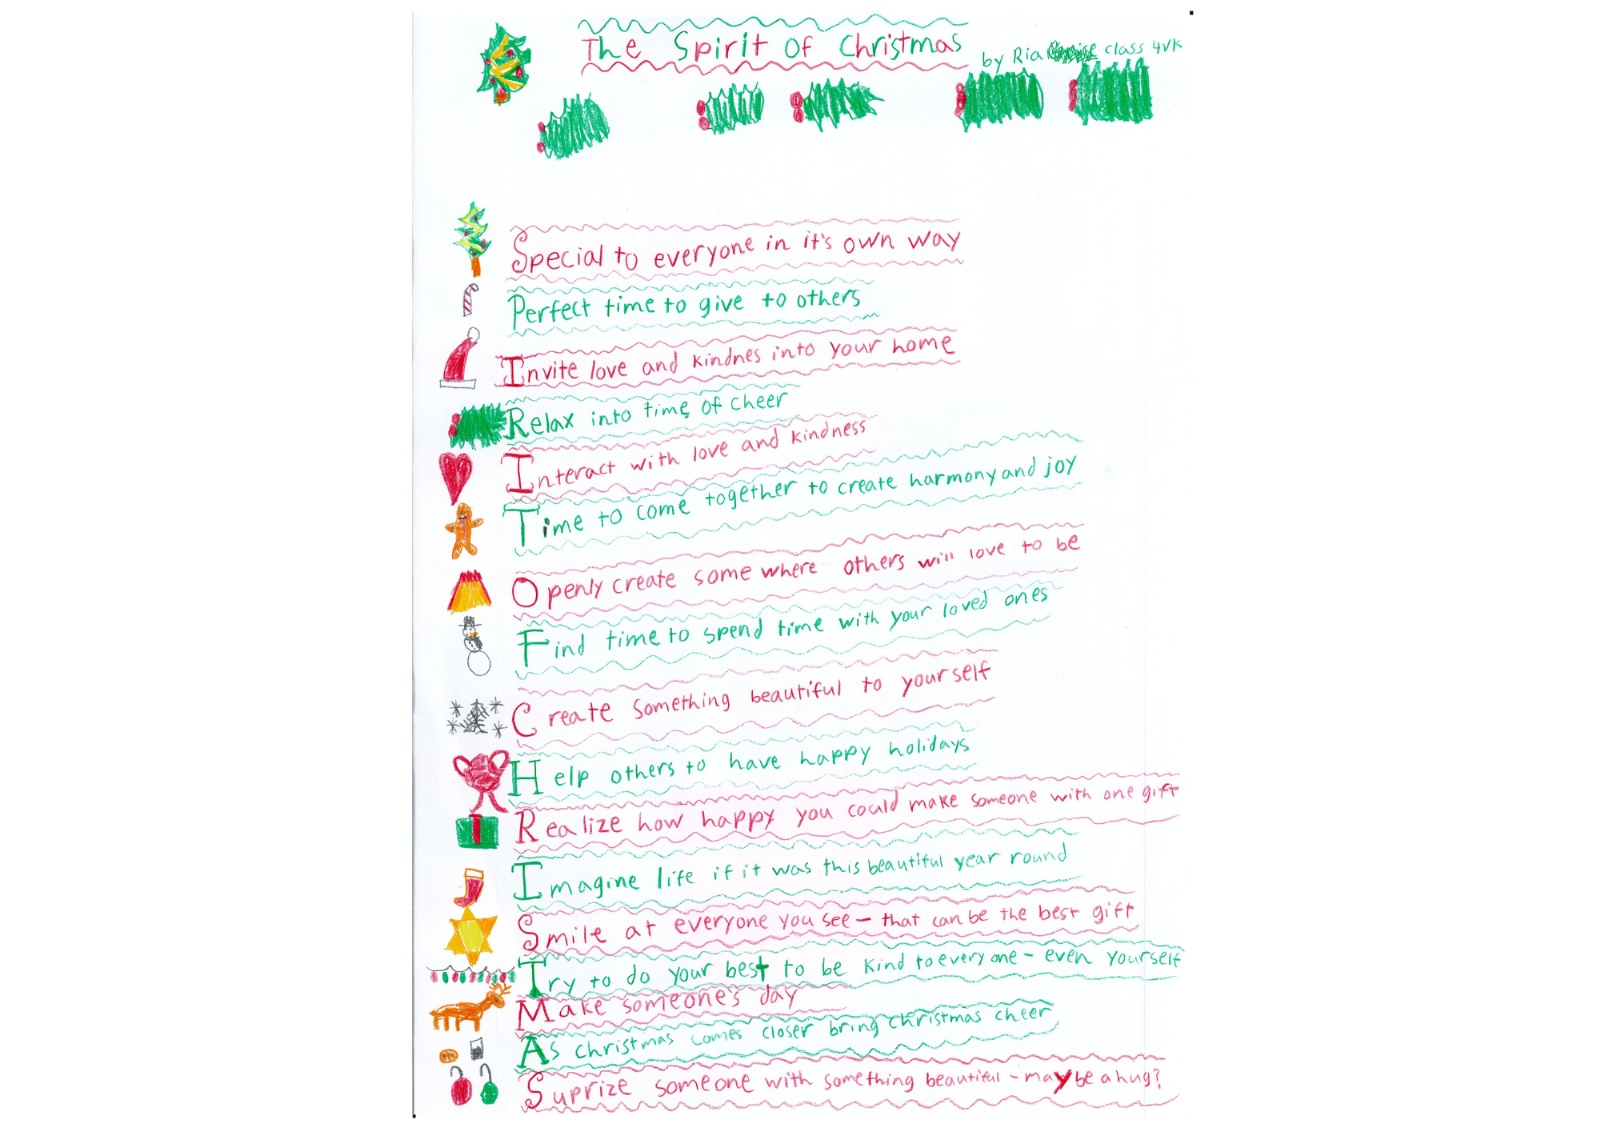 The Spirit of Christmas
by Ria class 4VK
Special to everyone in it's own way
Perfect time to give to others
Invite love and kindnes into your home
Relax into time of cheer
Interact with love and kindness
Time to come together to create harmony and joy
Openly create some where others will love to be
Find time to spend time with your loved ones
Create something beautiful to yourself
Help others to have happy holidays
Realize how happy you could make someone with one gift
Imagine life if it was this beautiful year round
Smile at everyone you see - that can be the best gift
Try to do your best to be kind to everyone - even yourself
Make someone's day
As christmas comes closer bring christmas cheer
Suprize someone with something beautiful - maybe a hug?